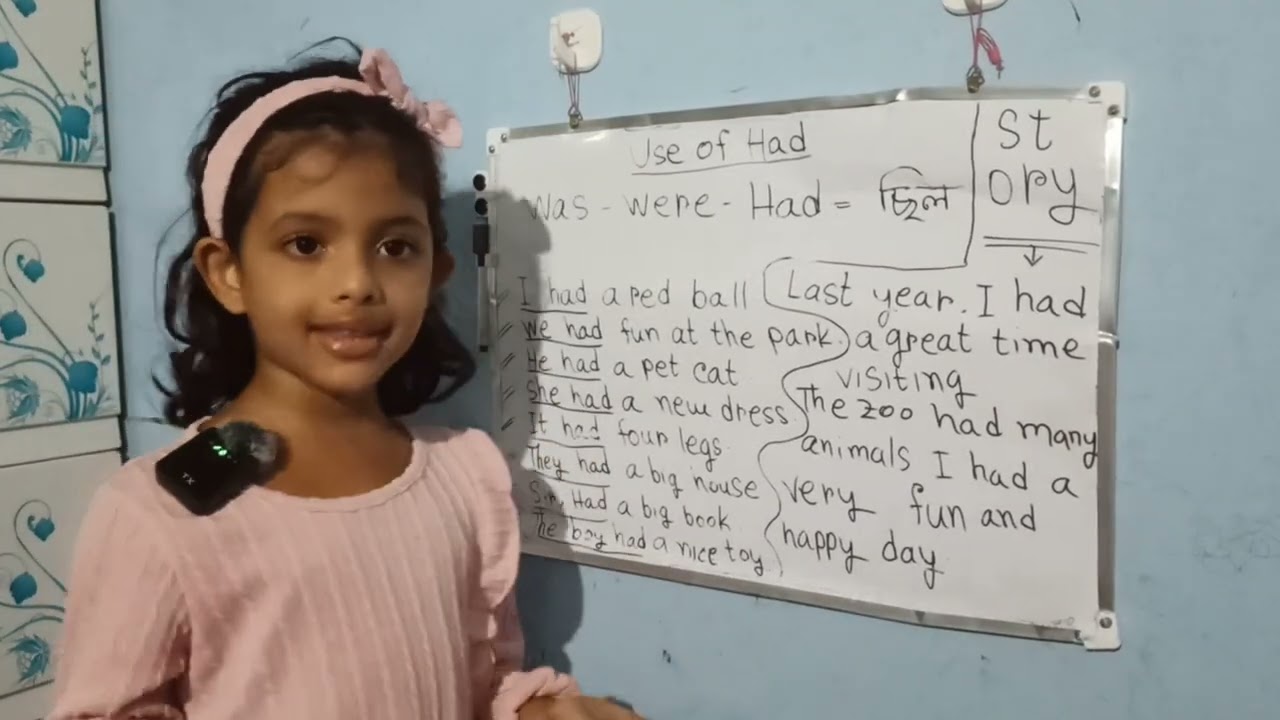 Use of Had
was - were - Had = ছিল
I had a red ball
we had fun at the park
He had a pet cat
She had a new dress
It had four legs
They had a big house
Had a big book
The boy had a nice toy
St
ory
Last year. I had
a great time
visiting
The zoo had many
animals I had a
very fun and
happy day
TX